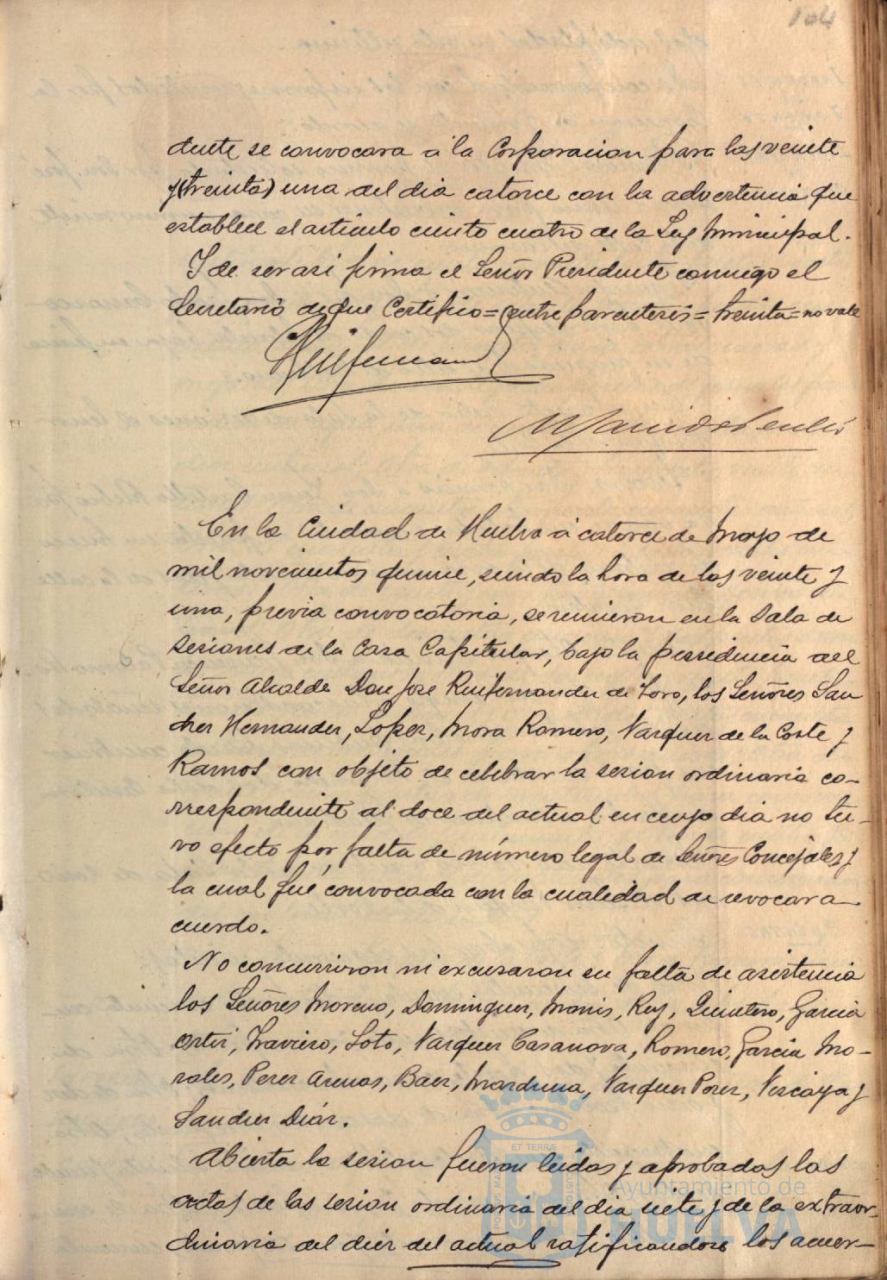 104
dente se convocara á la Corporacion para las veinte
y (treinta) una del dia catorce con la advertencia que
establece el articulo ciento cuatro de la Ley Municipal.
Y de ser asi firma el Señor Presidente conmigo el
Secretario de que Certifico = entre parentesis = treinta = no vale
En la Ciudad de Huelva á catorce de Mayo de
mil novecientos quince, siendo la hora de las veinte y
una, previa convocatoria, se reunieron en la Sala de
Sesiones de la Casa Capitular, bajo la presidencia del
Señor Alcalde Don Jose Ruifernandez de Toro, los Señores San
chez Hernandez, Lopez, Mora Romero, Vazquez de la Corte y
Ramos con objeto de celebrar la sesion ordinaria co-
rrespondiente al doce del actual en cuyo dia no tu-
vo efecto por falta de número legal de Señores Concejales y
la cual fué convocada con la cualidad de revocar a
cuerdo.
No concurrieron ni excusaron su falta de asistencia
los Señores Moreno, Dominguez, Monis, Rey, Quintero, Garcia
Ortiz, Traviero, Soto, Vazquez Casanova, Romero, Garcia Mo-
rales, Perez Arenas, Baez, Vazquez Perez, Vizcaya y
Sanchez Diaz.
Abierta la sesion fueron leidas y aprobadas las
actas de las sesion ordinaria del dia siete y de la extraor-
dinaria del diez del actual ratificandose los acuer-
ET TERRÆ
Ayuntamiento de
HUELVA